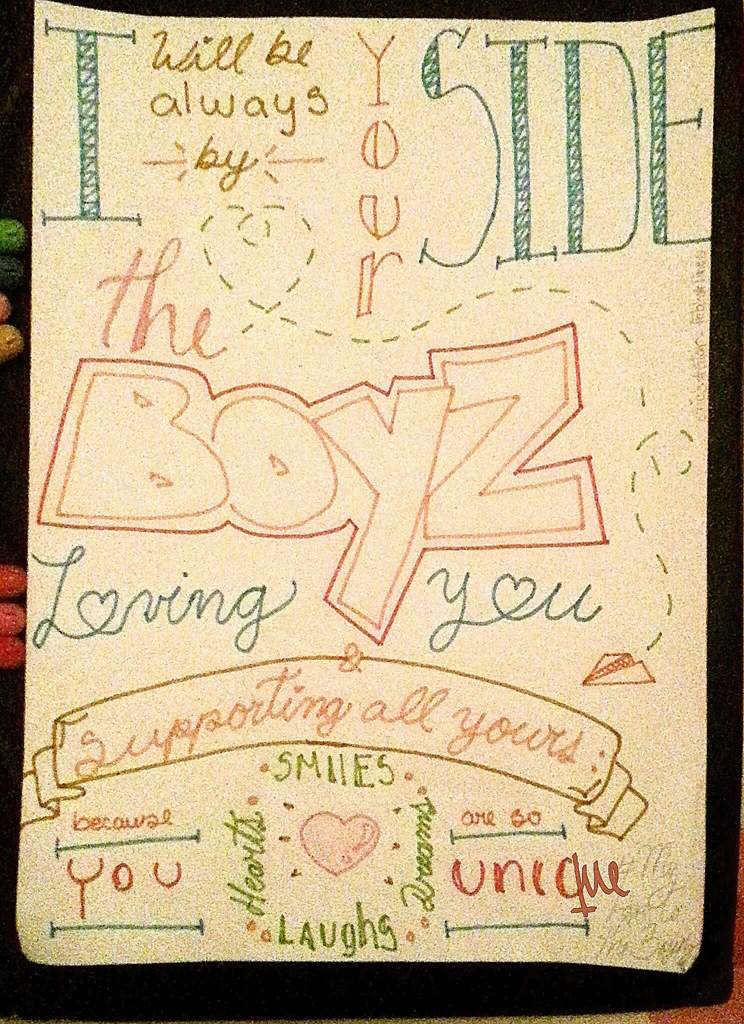 I will be always by your SIDE
the
BOYZ
Loving you
&
Supporting all yours:
SMIlES
Hearts
Dreams
LAUghS
because
YOU
are so
unique